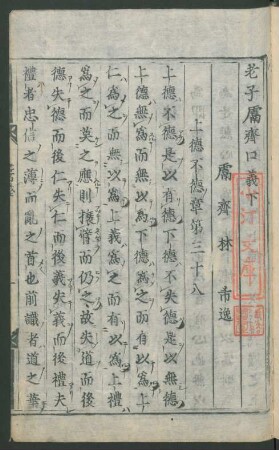 老子鬳齋口義下
鬳齋林希逸
上德不德章第三十八
上德不德是以有德下德不失德是以無德
上德無爲而無以爲下德爲之而有以爲上
仁爲之而無以爲上義爲之而有以爲上禮
爲之而莫之應則攘臂而仍之故失道而後
德失德而後仁失仁而後義失義而後禮夫
禮者忠信之薄而亂之首也前識者道之華